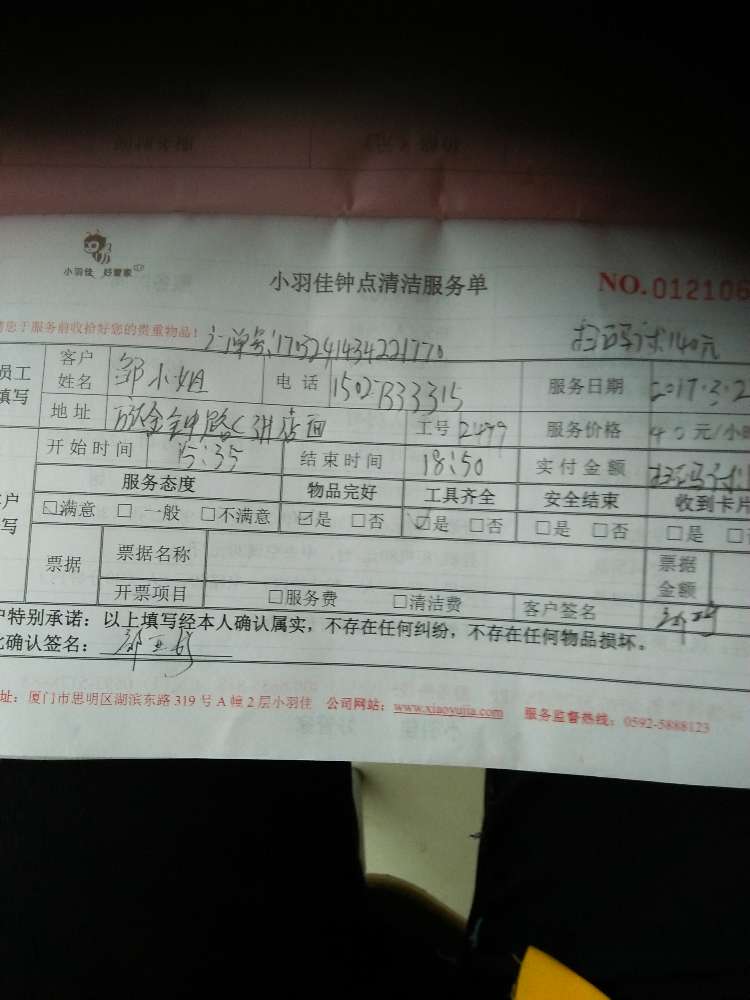 小羽佳 好管家
小羽佳钟点清洁服务单
NO.012106
请您于服务前收拾好您的贵重物品!
订单号:1703241434221770
扫码付140元
员工填写
客户姓名 邹小姐 电话 服务日期 2017.3.2
地址 工号 2499 服务价格 40元/小时
开始时间 15:35 结束时间 18:50 实付金额
服务态度 物品完好 工具齐全 安全结束 收到卡片
☑满意 □一般 □不满意 ☑是 □否 ☑是 □否 □是 □否 □是 □
票据 票据名称 票据金额
开票项目 □服务费 □清洁费 客户签名
户特别承诺:以上填写经本人确认属实,不存在任何纠纷,不存在任何物品损坏。
此确认签名:
址:厦门市思明区湖滨东路319号A幢2层小羽佳 公司网站:www.xiaoyujia.com 服务监督热线:0592-5888123